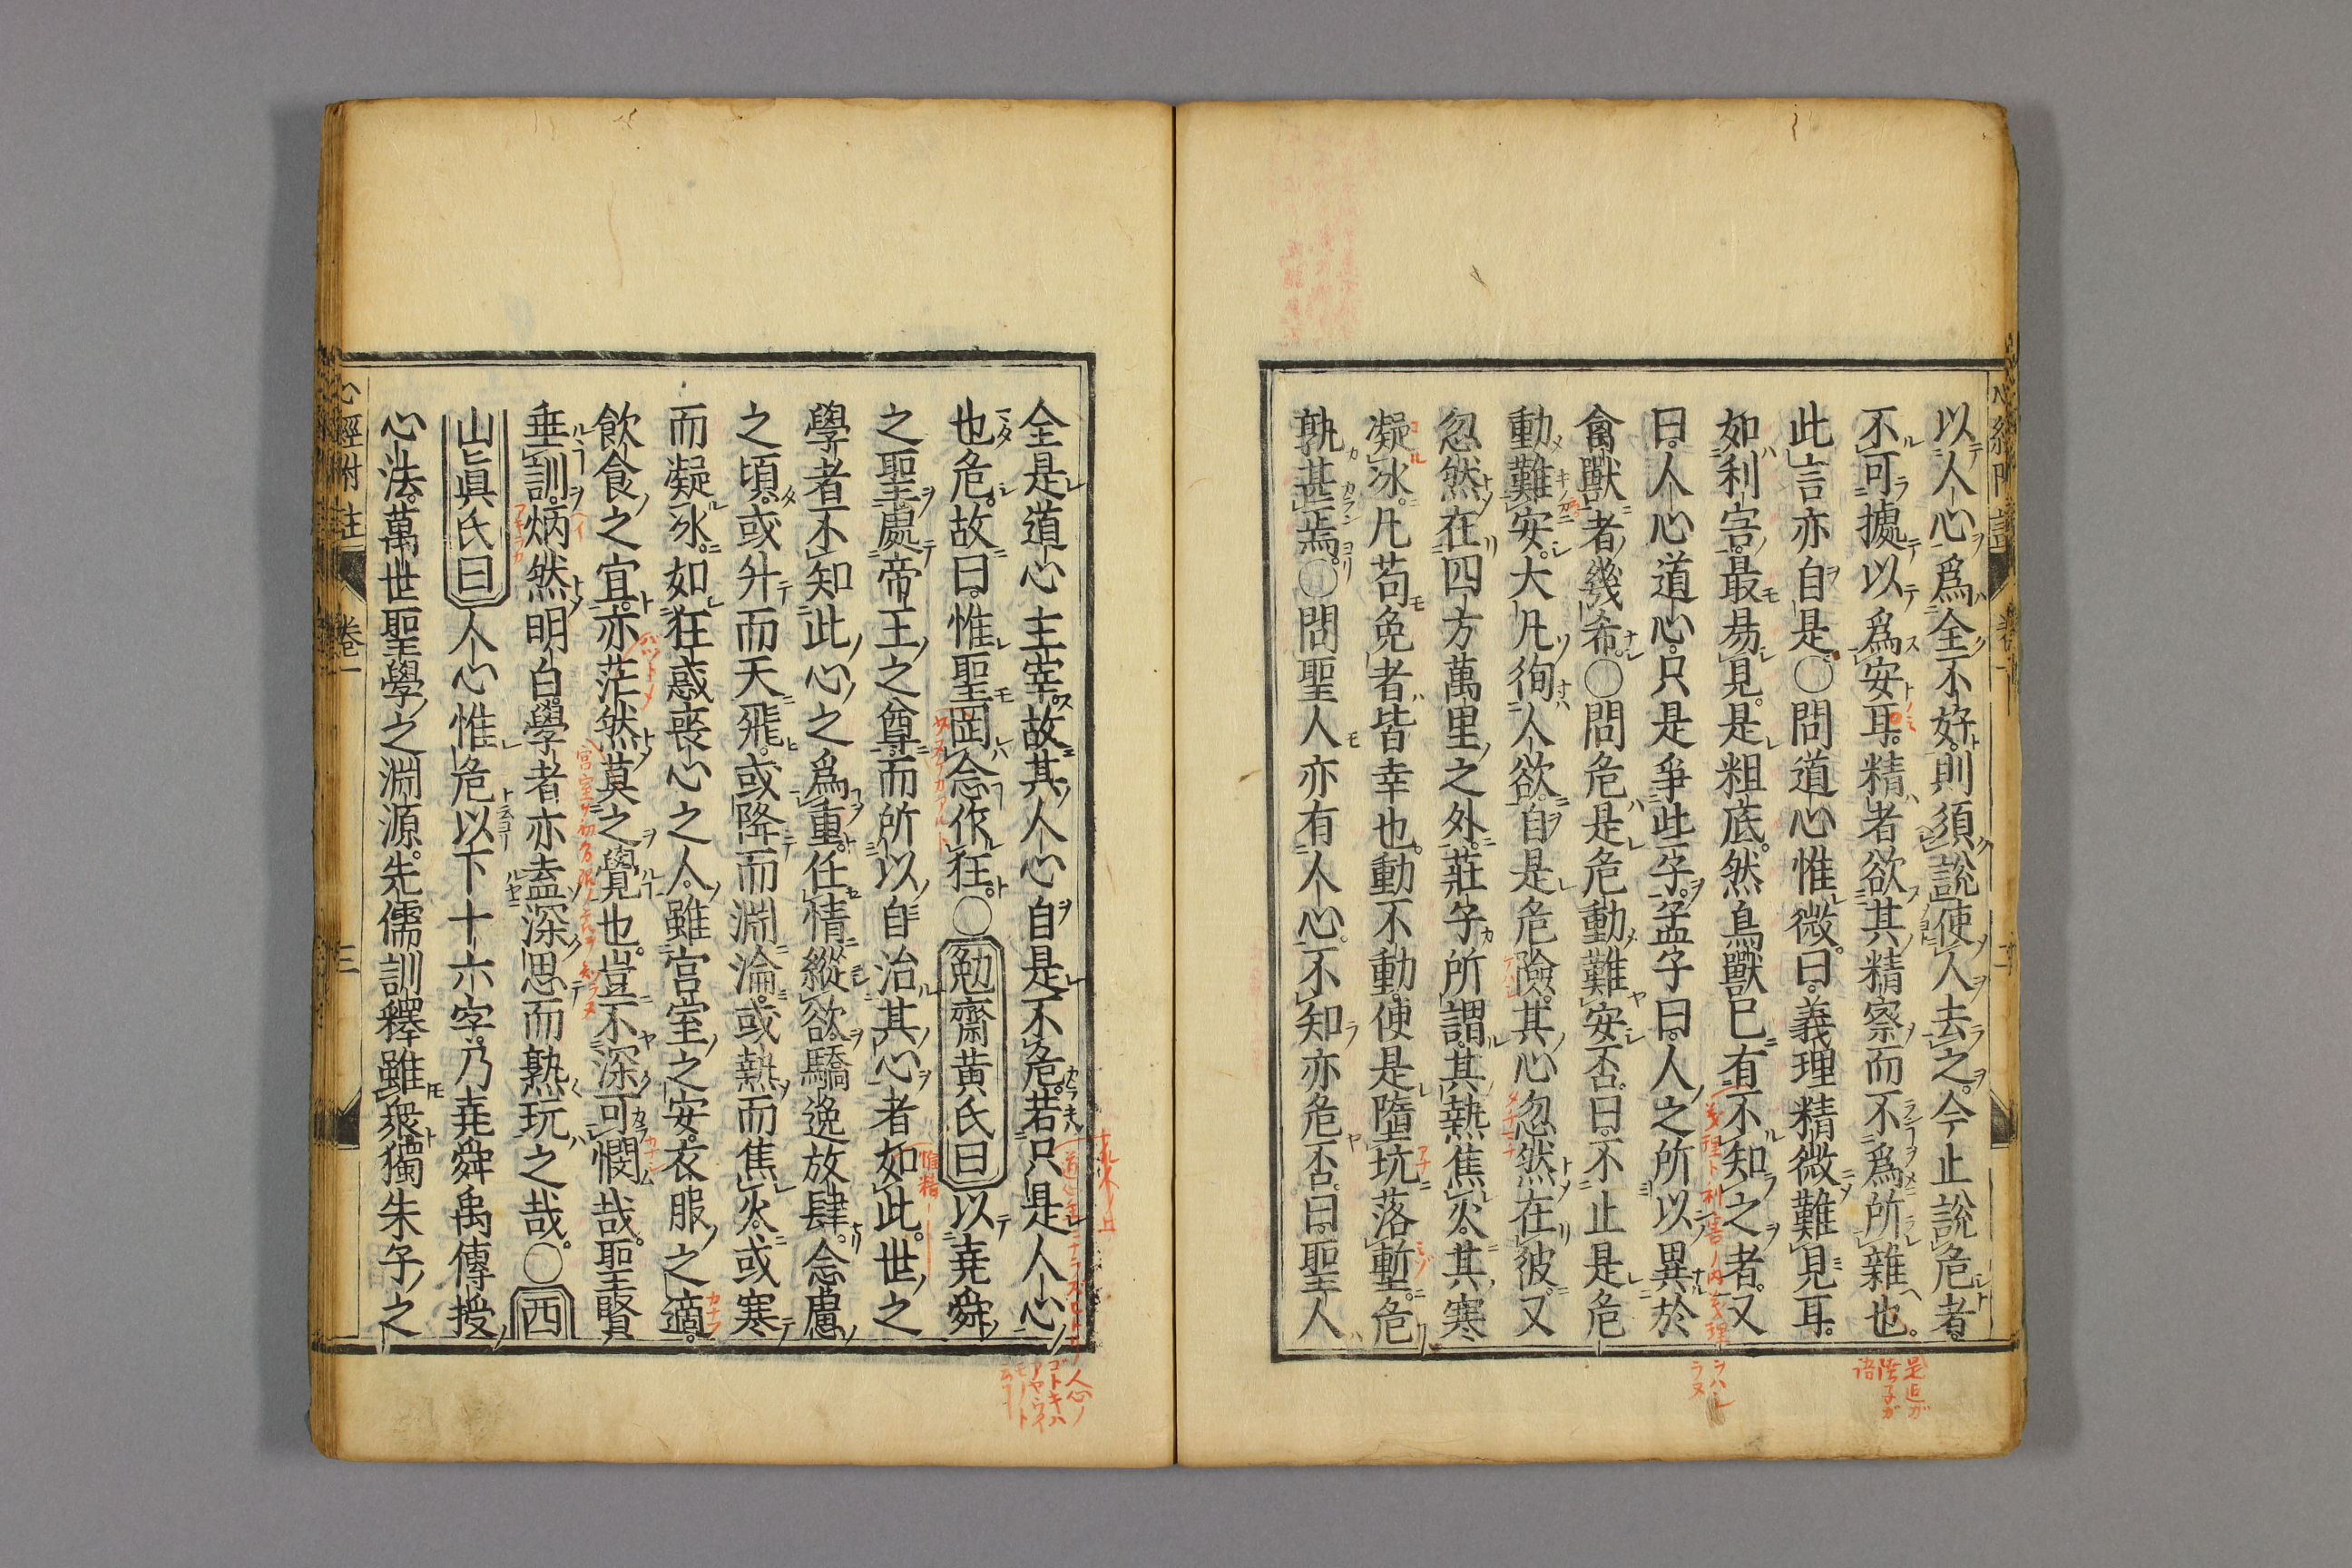 以人心爲全不好則須說使人去之今止說危者
不可據以爲安耳精者欲其精察而不爲所雜也
此言亦自是○問道心惟微曰義理精微難見耳
如利害最易見是粗底然鳥獸已有不知之者又
曰人心道心只是爭些子孟子曰人之所以異於
禽獸者幾希○問危是危動難安否曰不止是危
動難安大凡徇人欲自是危險其心忽然在彼又
忽然在四方萬里之外莊子所謂其熱焦火其寒
凝冰凡苟免者皆幸也動不動便是墮坑落塹危
孰甚焉○問聖人亦有人心不知亦危否曰聖人
全是道心主宰故其人心自是不危若只是人心
也危故曰惟聖罔念作狂○勉齋黃氏曰以堯舜
之聖處帝王之尊而所以自治其心者如此世之
學者不知此心之爲重任情縱欲驕逸放肆念慮
之頃或升而天飛或降而淵淪或熱而焦火或寒
而凝冰如狂惑喪心之人雖宮室之安衣服之適
飮食之宜亦茫然莫之覺也豈不深可憫哉聖賢
垂訓炳然明白學者亦盍深思而熟玩之哉○西
山眞氏曰人心惟危以下十六字乃堯舜禹傳授
心法萬世聖學之淵源先儒訓釋雖衆獨朱子之
心經附註 卷一 三